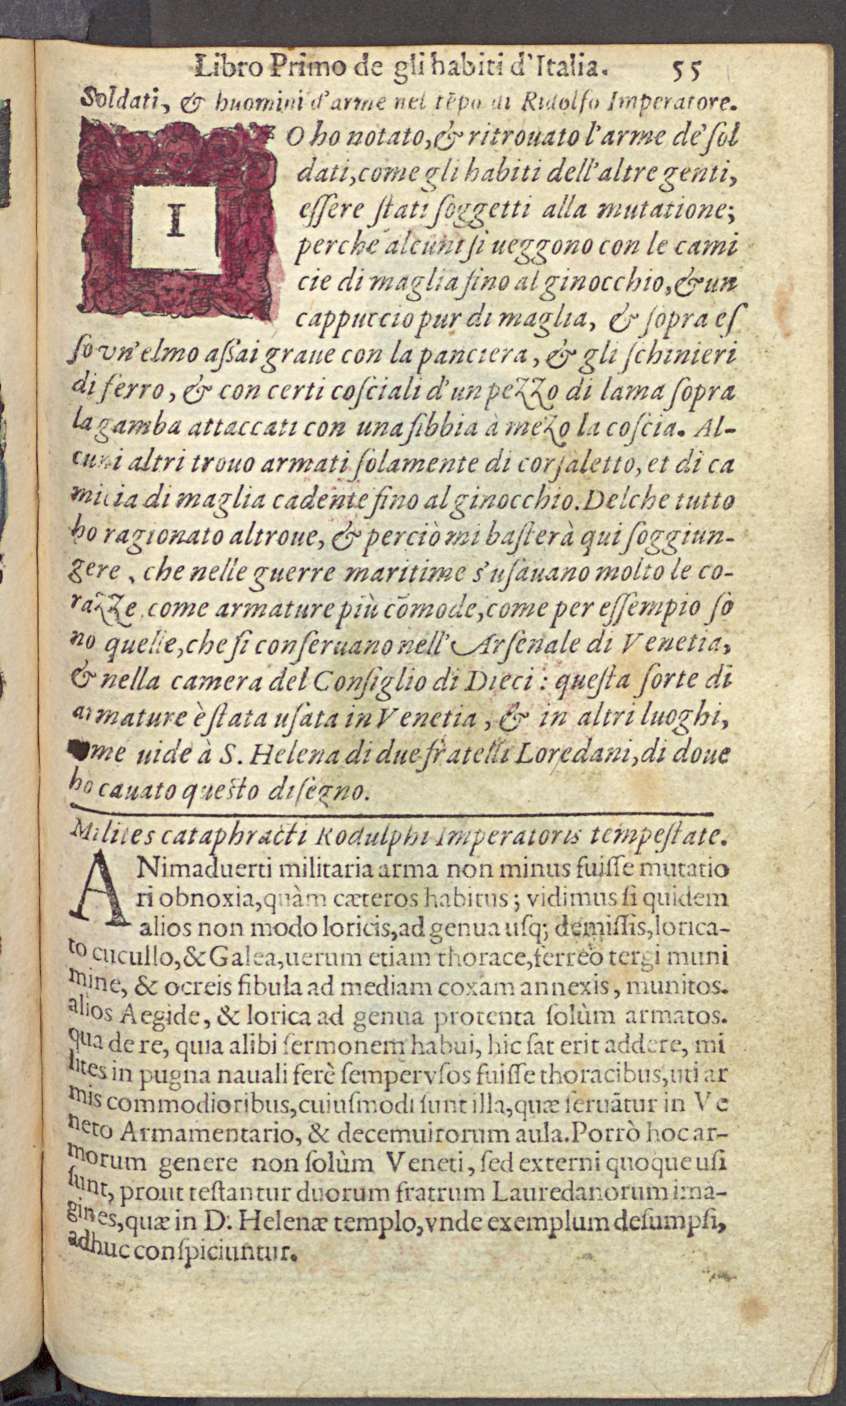 Libro Primo de gli habiti d'Italia. 55
Soldati, & huomini d'arme nel tẽpo di Ridolfo Imperatore.
IO ho notato,& ritrouato l'arme de' ſol
dati,come gli habiti dell'altre genti,
eſſere ſtati ſoggetti alla mutatione;
perche alcuni ſi ueggono con le cami
cie di maglia fino al ginocchio,& un
cappuccio pur di maglia, & ſopra eſ
ſo vn'elmo aſſai graue con la panciera, & gli ſchinieri
di ferro, & con certi coſciali d'un pezzo di lama ſopra
la gamba attaccati con una fibbia à mezo la coſcia. Al-
cuni altri trouo armati ſolamente di corſaletto, et di ca
micia di maglia cadente fino al ginocchio. Del che tutto
ho ragionato altroue, & perciò mi baſterà qui ſoggiun-
gere, che nelle guerre maritime s'uſauano molto le co-
razze come armature più cõmode,come per eſſempio ſo
no quelle,che ſi conſeruano nell'Arſenale di Venetia,
& nella camera del Conſiglio di Dieci: queſta ſorte di
armature è ſtata uſata in Venetia, & in altri luoghi,
ome uide à S. Helena di due fratelli Loredani,di doue
ho cauato queſto diſegno.
Milites cataphracti Rodulphi Imperatoris tempeſtate.
ANimaduerti militaria arma non minus fuiſſe mutatio
ri obnoxia,quàm cæteros habitus; vidimus ſi quidem
alios non modo loricis,ad genua uſq; demiſsis,lorica-
to cucullo,& Galea,uerum etiam thorace,ferreo tergi muni
mine, & ocreis fibula ad mediam coxam annexis, munitos.
alios Aegide, & lorica ad genua protenta ſolùm armatos.
qua de re, quia alibi ſermonem habui, hic ſat erit addere, mi
lites in pugna nauali ferè ſemper vſos fuiſſe thoracibus,uti ar
mis commodioribus,cuiuſmodi ſunt illa,quæ ſeruãtur in Ve
neto Armamentario, & decemuirorum aula.Porrò hoc ar-
morum genere non ſolùm Veneti, ſed externi quoque uſi
ſunt, prout teſtantur duorum fratrum Lauredanorum ima-
gines,quæ in D. Helenæ templo,vnde exemplum deſumpſi,
adhuc conſpiciuntur.